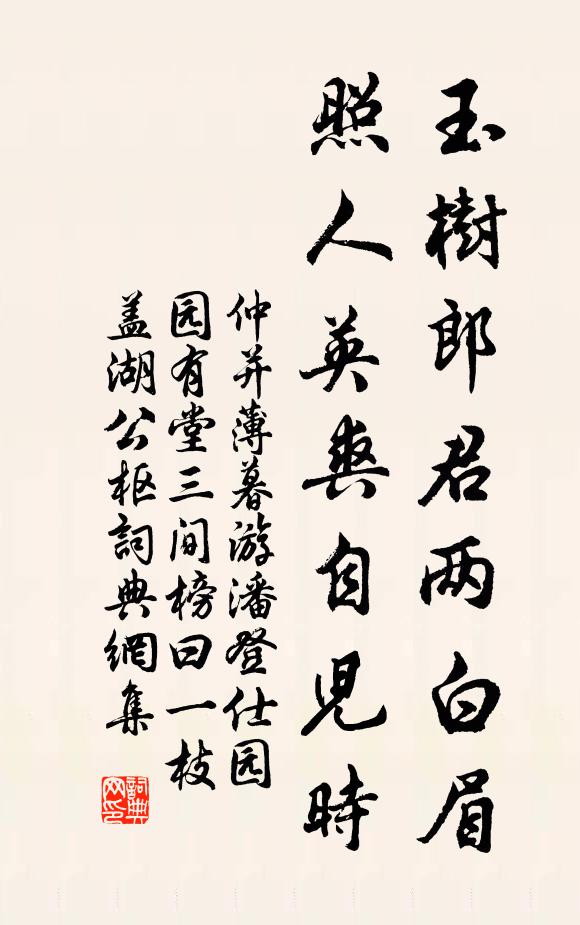 玉樹郎君两白眉
照人英爽自児時
仲并薄暮游潘登仕园
园有堂三间榜曰一枝
盖湖公枢詞典網集
詞典
网印